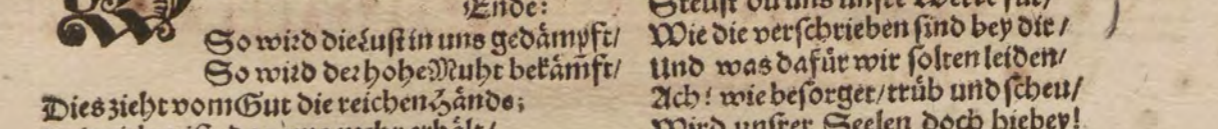 Ende:
So wird die Lust in uns gedämpft/
So wird der hohe Muht bekäm̃ft/
Dies zieht vom Gut die reichen Hände;
Stellst du uns unsre Wercke für/
Wie die verschrieben sind bey dir/
Und was dafür wir solten leiden/
Ach! wie besorget/trüb und scheu/
Wird unsrer Seelen doch hiebey!